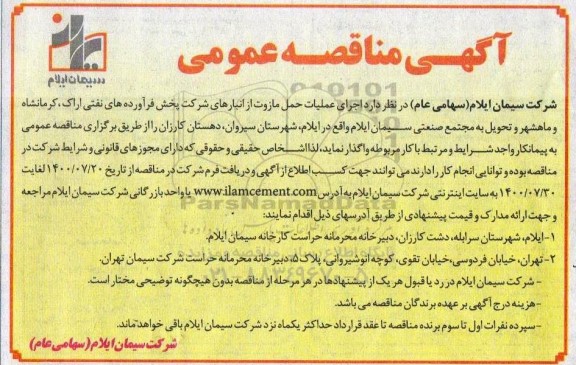 آگهی مناقصه عمومی
سیمان ایلام
شرکت سیمان ایلام(سهامی عام) در نظر دارد اجرای عملیات حمل مازوت از انبارهای شرکت پخش فرآورده های نفتی اراک، کرمانشاه
و ماهشهر و تحویل به مجتمع صنعتی سیمان ایلام واقع در ایلام، شهرستان سیروان، دهستان کارزان را از طریق برگزاری مناقصه عمومی
به پیمانکار واجد شرایط و مرتبط با کار مربوطه واگذار نماید، لذا اشخاص حقیقی و حقوقی که دارای مجوزهای قانونی و شرایط شرکت در
مناقصه بوده و توانایی انجام کار را دارند می توانند جهت کسب اطلاع از آگهی و دریافت فرم شرکت در مناقصه از تاریخ ۱۴۰۰/۰۷/۲۰ لغایت
۱۴۰۰/۰۷/۳۰ به سایت اینترنتی شرکت سیمان ایلام به آدرس www.ilamcement.com یا واحد بازرگانی شرکت سیمان ایلام مراجعه
و جهت ارائه مدارک و قیمت پیشنهادی از طریق آدرسهای ذیل اقدام نمایند:
۱-ایلام، شهرستان سرابله، دشت کارزان، دبیرخانه محرمانه حراست کارخانه سیمان ایلام.
۲-تهران، خیابان فردوسی، خیابان تقوی، کوچه انوشیروانی، پلاک ۵، دبیرخانه محرمانه حراست شرکت سیمان تهران.
- شرکت سیمان ایلام در رد یا قبول هر یک از پیشنهادها در هر مرحله از مناقصه بدون هیچگونه توضیحی مختار است.
-هزینه درج آگهی بر عهده برندگان مناقصه می باشد.
-سپرده نفرات اول تا سوم برنده مناقصه تا عقد قرارداد حداکثر یکماه نزد شرکت سیمان ایلام باقی خواهد ماند.
شرکت سیمان ایلام(سهامی عام)
ParsNamadData